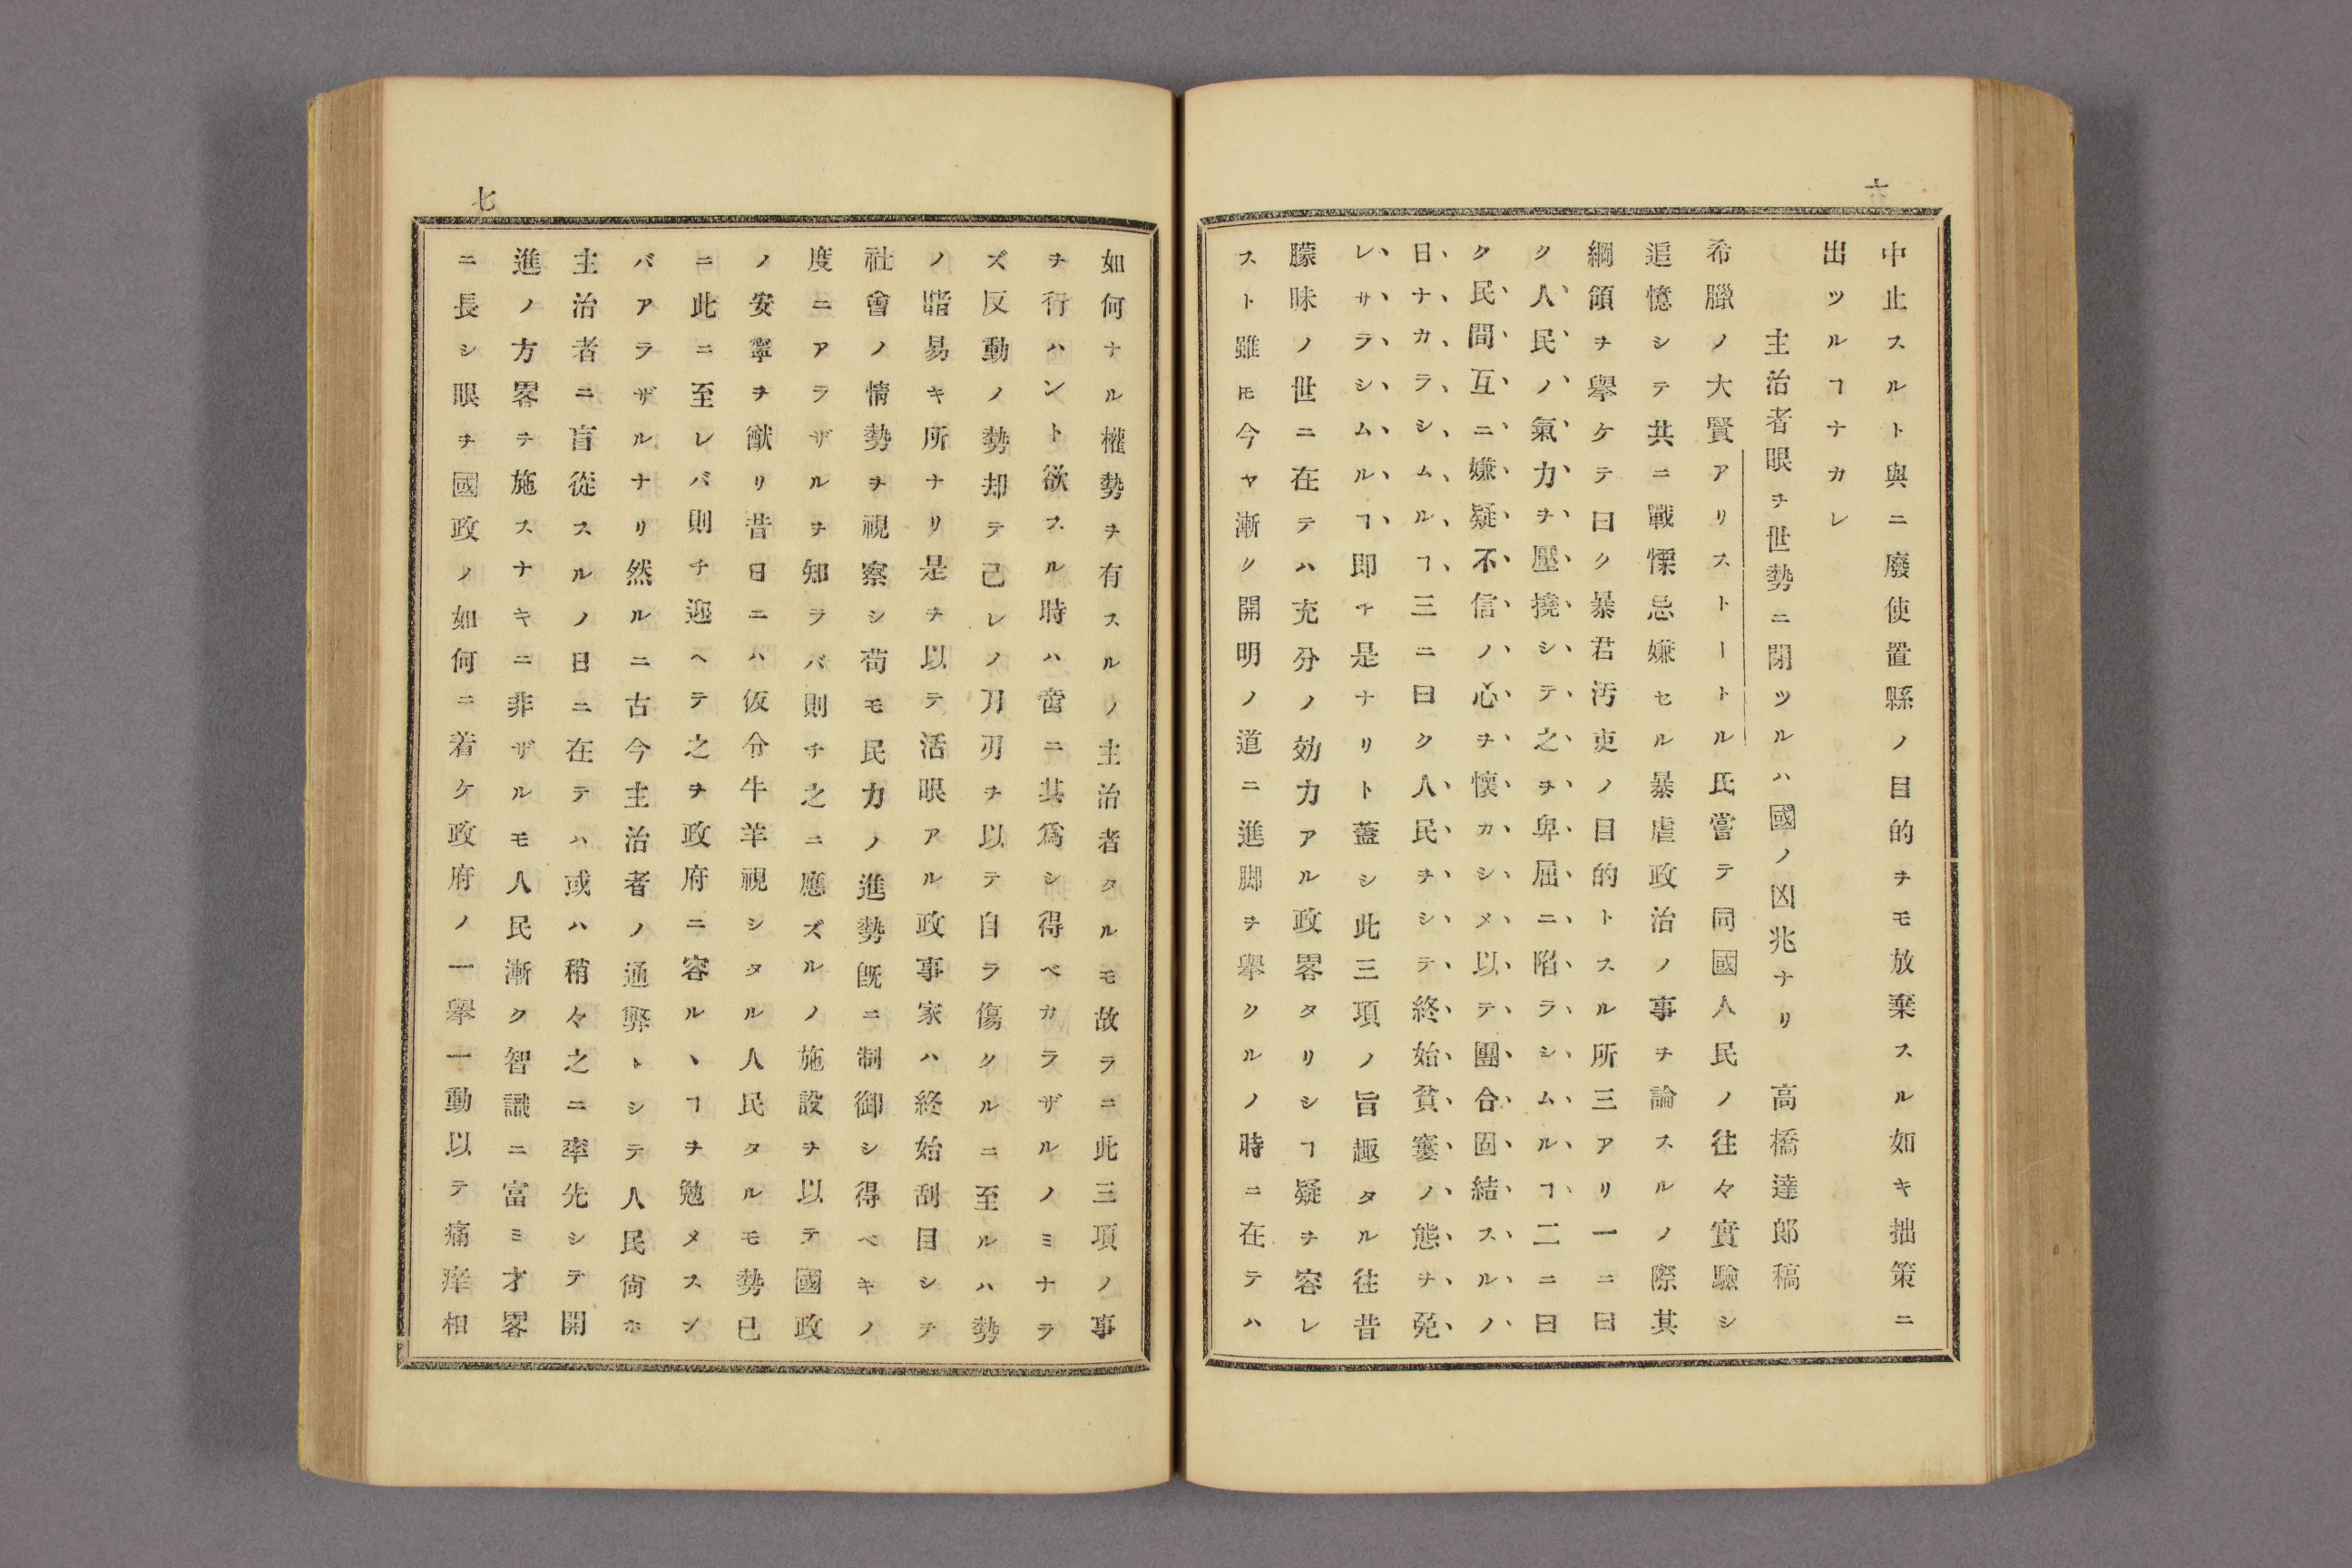 六
中止スルト與ニ廢使置縣ノ目的ヲモ放棄スル如キ拙策ニ
出ツルヿナカレ
主治者眼ヲ世勢ニ閉ツルハ國ノ凶兆ナリ 高橋達郎稿
希臘ノ大賢アリストートル氏嘗テ同國人民ノ往々實驗シ
追憶シテ共ニ戰慄忌嫌セル暴虐政治ノ事ヲ論スルノ際其
綱領ヲ擧ケテ曰ク暴君汚吏ノ目的トスル所三アリ一ニ曰
ク人民ノ氣力ヲ壓撓シテ之ヲ卑屈ニ陷ラシムルヿ二ニ曰
ク民間互ニ嫌疑不信ノ心ヲ懷カシメ以テ團合固結スルノ
日ナカラシムルヿ三ニ曰ク人民ヲシテ終始貧窶ノ態ヲ免
レサラシムルヿ即チ是ナリト蓋シ此三項ノ旨趣タル往昔
朦昧ノ世ニ在テハ充分ノ効力アル政畧タリシヿ疑ヲ容レ
スト雖𪜈今ヤ漸ク開明ノ道ニ進脚ヲ擧クルノ時ニ在テハ
七
如何ナル權勢ヲ有スルノ主治者タルモ故ラニ此三項ノ事
ヲ行ハント欲スル時ハ啻ニ其爲シ得ベカラザルノミナラ
ズ反動ノ勢却テ己レノ刀刃ヲ以テ自ラ傷クルニ至ルハ勢
ノ睹易キ所ナリ是ヲ以テ活眼アル政事家ハ終始刮目シテ
社會ノ情勢ヲ視察シ苟モ民力ノ進勢既ニ制御シ得ベキノ
度ニアラザルヲ知ラバ則チ之ニ應ズルノ施設ヲ以テ國政
ノ安寧ヲ猷リ昔日ニハ仮令牛羊視シタル人民タルモ勢已
ニ此ニ至レバ則チ迎ヘテ之ヲ政府ニ容ルヽヿヲ勉メスン
バアラザルナリ然ルニ古今主治者ノ通弊トシテ人民尙ホ
主治者ニ盲從スルノ日ニ在テハ或ハ稍々之ニ率先シテ開
進ノ方畧ヲ施スナキニ非ザルモ人民漸ク智識ニ富ミ才畧
ニ長シ眼ヲ國政ノ如何ニ着ケ政府ノ一擧一動以テ痛痒相